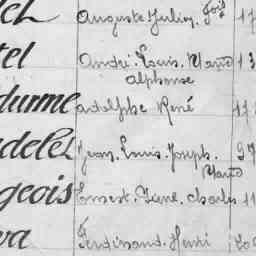 Auguste Julien. Foi 17
tel André. Louis. Marie 13
Alphonse
durme Adolphe René 17
delet Jean. Louis. Joseph. 97
Marie
geois Ernest. Irène. Charles 11
va Ferdinand. Henri